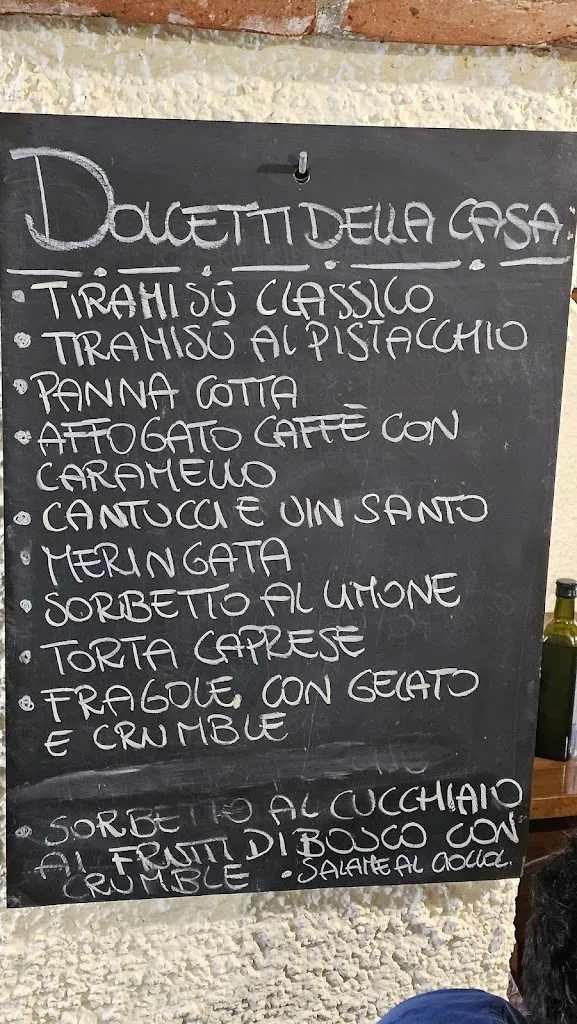 DOLCETTI DELLA CASA
• TIRAMISÙ CLASSICO
• TIRAMISÙ AL PISTACCHIO
• PANNA COTTA
• AFFOGATO CAFFÈ CON
CARAMELLO
• CANTUCCI E VIN SANTO
• MERINGATA
• SORBETTO AL LIMONE
• TORTA CAPRESE
• FRAGOLE, CON GELATO
E CRUMBLE
• SORBETTO AL CUCCHIAIO
AI FRUTTI DI BOSCO CON
CRUMBLE • SALAME AL CIOCCOL.